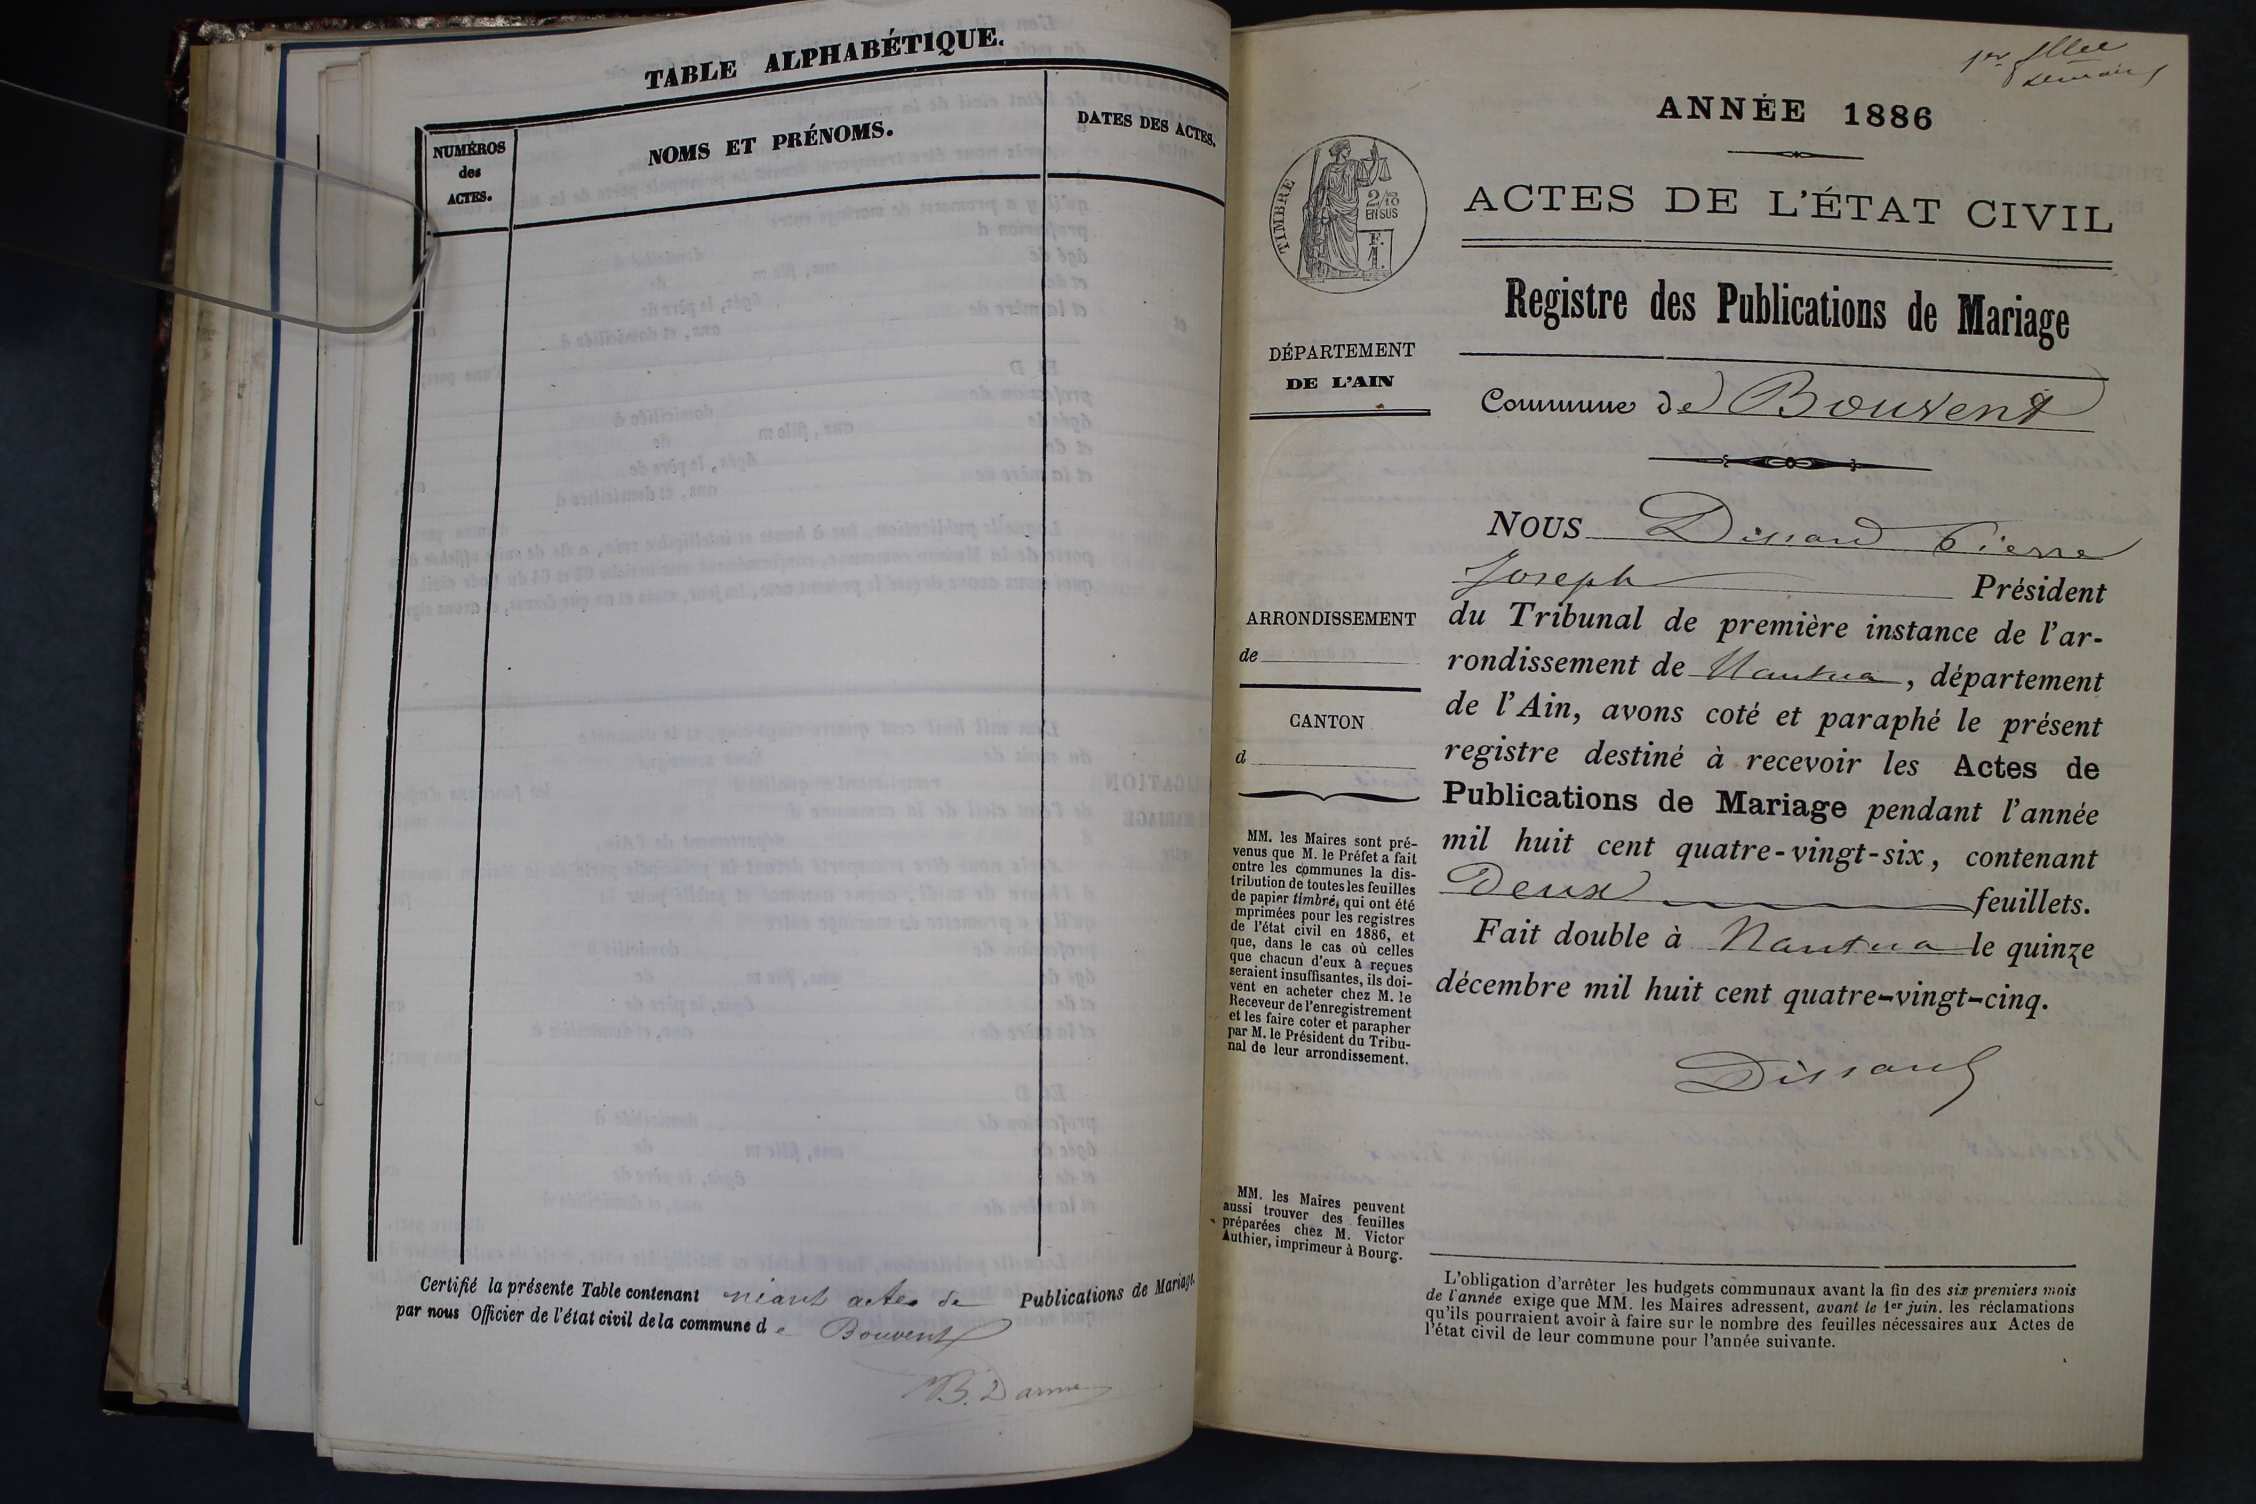 TABLE ALPHABÉTIQUE.
NUMÉROS
des
ACTES.
NOMS ET PRÉNOMS.
DATES DES ACTES.
Certifié la présente Table contenant néant actes de Publications de Mariage.
par nous Officier de l'état civil de la commune de Bouvent
1er
ANNÉE 1886
TIMBRE
2/10
EN SUS
F.
1.
ACTES DE L'ÉTAT CIVIL
Registre des Publications de Mariage
DÉPARTEMENT
DE L'AIN
Commune de Bouvent
NOUS Dissard Pierre
Joseph Président
du Tribunal de première instance de l'ar-
rondissement de Nantua, département
de l'Ain, avons coté et paraphé le présent
registre destiné à recevoir les Actes de
Publications de Mariage pendant l'année
mil huit cent quatre-vingt-six, contenant
Deux feuillets.
Fait double à Nantua le quinze
décembre mil huit cent quatre-vingt-cinq.
Dissard
ARRONDISSEMENT
de
CANTON
d
MM. les Maires sont pré-
venus que M. le Préfet a fait
entre les communes la dis-
tribution de toutes les feuilles
de papier timbré, qui ont été
mprimées pour les registres
de l'état civil en 1886, et
que, dans le cas où celles
que chacun d'eux a reçues
seraient insuffisantes, ils doi-
vent en acheter chez M. le
Receveur de l'enregistrement
et les faire coter et parapher
par M. le Président du Tribu-
nal de leur arrondissement.
MM. les Maires peuvent
aussi trouver des feuilles
préparées chez M. Victor
Authier, imprimeur à Bourg.
L'obligation d'arrêter les budgets communaux avant la fin des six premiers mois
de l'année exige que MM. les Maires adressent, avant le 1er juin. les réclamations
qu'ils pourraient avoir à faire sur le nombre des feuilles nécessaires aux Actes de
l'état civil de leur commune pour l'année suivante.